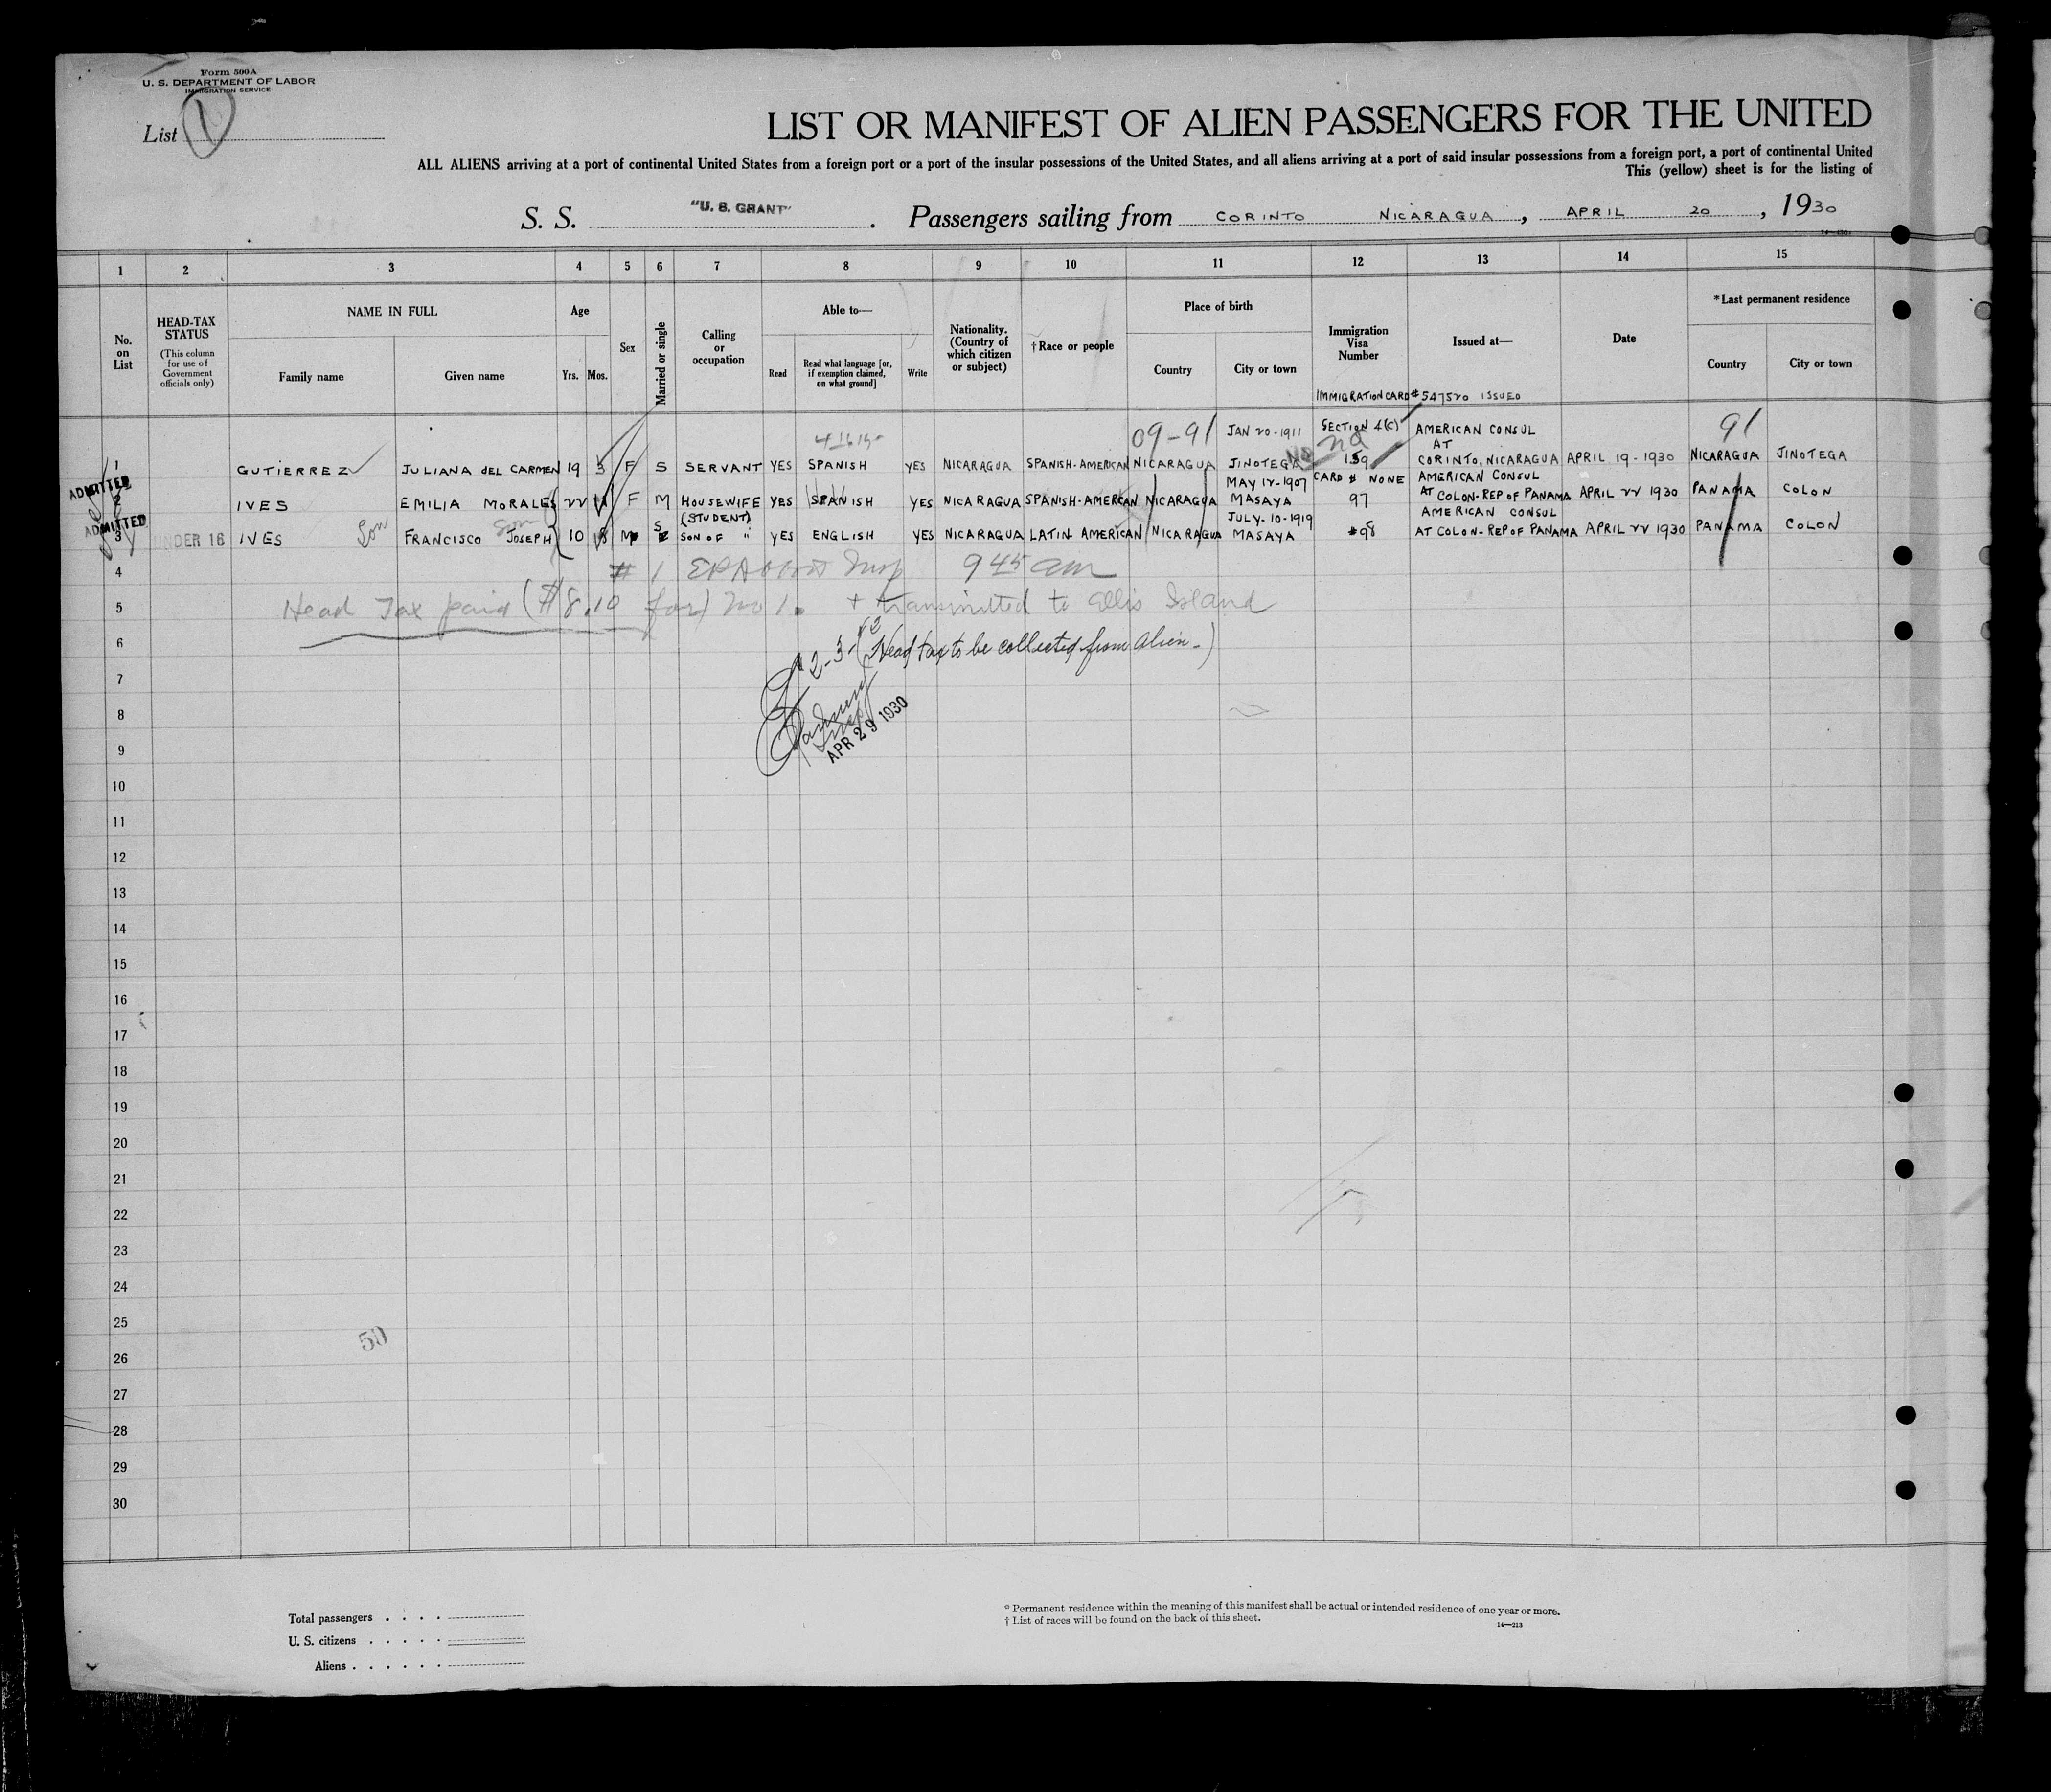 Form 500A
U. S. DEPARTMENT OF LABOR
IMMIGRATION SERVICE
List 1
LIST OR MANIFEST OF ALIEN PASSENGERS FOR THE UNITED
ALL ALIENS arriving at a port of continental United States from a foreign port or a port of the insular possessions of the United States, and all aliens arriving at a port of said insular possessions from a foreign port, a port of continental United
This (yellow) sheet is for the listing of
S. S. "U. S. GRANT". Passengers sailing from CORINTO NICARAGUA, APRIL 20, 1930
1 2 3 4 5 6 7 8 9 10 11 12 13 14 15
No. on List
HEAD-TAX STATUS
(This column for use of Government officials only)
NAME IN FULL
Family name
Given name
Age
Yrs. Mos.
Sex
Married or single
Calling or occupation
Able to—
Read
Read what language [or, if exemption claimed, on what ground]
Write
Nationality. (Country of which citizen or subject)
†Race or people
Place of birth
Country
City or town
Immigration Visa Number
Issued at—
Date
*Last permanent residence
Country
City or town
IMMIGRATION CARD # 547520 ISSUED
09-91 JAN 20-1911 SECTION 4(C) AMERICAN CONSUL 91
AT
1 GUTIERREZ JULIANA DEL CARMEN 19 3 F S SERVANT YES SPANISH YES NICARAGUA SPANISH-AMERICAN NICARAGUA JINOTEGA 159 CORINTO, NICARAGUA APRIL 19-1930 NICARAGUA JINOTEGA
ADMITTED
MAY 12-1907 CARD # NONE AMERICAN CONSUL
2 IVES EMILIA MORALES 22 11 F M HOUSEWIFE YES SPANISH YES NICARAGUA SPANISH-AMERICAN NICARAGUA MASAYA 97 AT COLON-REP OF PANAMA APRIL 22 1930 PANAMA COLON
ADMITTED
(STUDENT) JULY-10-1919 AMERICAN CONSUL
3 UNDER 16 IVES Son FRANCISCO JOSEPH 10 M S SON OF " YES ENGLISH YES NICARAGUA LATIN AMERICAN NICARAGUA MASAYA #98 AT COLON-REP OF PANAMA APRIL 22 1930 PANAMA COLON
4 # 1 Insp 9 45 am
5 Head Tax paid ($8.10 for) No 1. + transmitted to Ellis Island
6 2-3- (Head tax to be collected from alien.)
7
8
APR 29 1930
9
10
11
12
13
14
15
16
17
18
19
20
21
22
23
24
25
50
26
27
28
29
30
Total passengers . . . .
U. S. citizens . . . . .
Aliens . . . . . .
* Permanent residence within the meaning of this manifest shall be actual or intended residence of one year or more.
† List of races will be found on the back of this sheet.
14—213